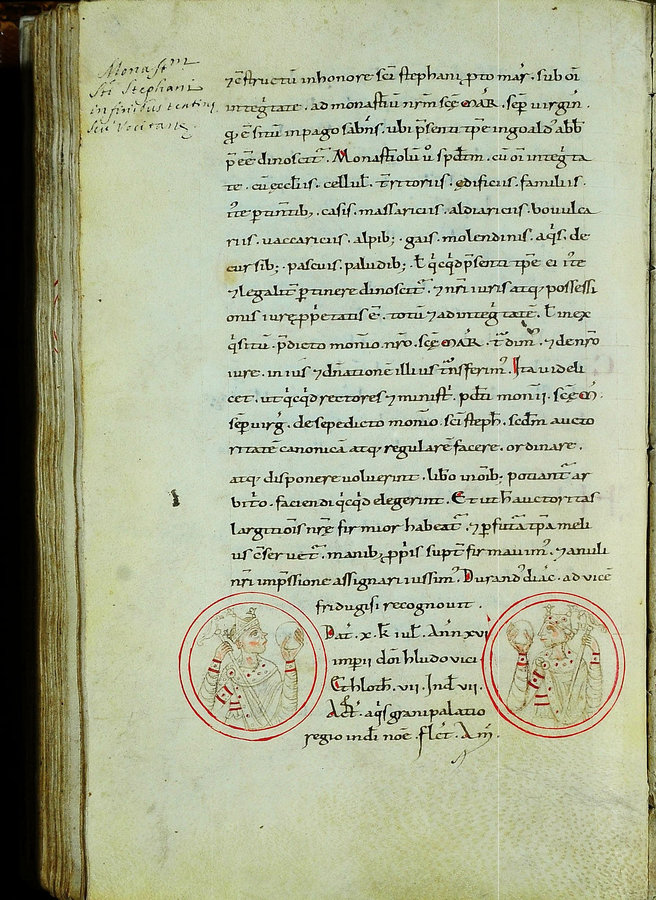 Monast^m
Sti Stephani
in finibus teatin
seu Vocitane
⁊ cstructū in honore sci stephani ꝓto mar̄. sub oī
inteḡtate. ad monastiū nrm̄ scę MAR̄. sep̄ virgin̄.
qđ ē situ in pago sabin̄s. ubi p̄senti tp̄e ingoald' abb̄
p̄eē dinoscit̄. Monastiolū ū sp̄dtm̄. cū oī inteḡta
te. cū ęcclis. cellul̄. t̄rritoriis. ędificiis. familiis.
ite p̄tinentib;. casis. massariciis. aldiariciis. bovulca
riis. vaccariciis. alpib;. gais. molendinis. aq̄s. de
cursib; pascuis. paludib; ł q̄cq̄d p̄senti tp̄e ei ite
⁊ legalit̄ p̄tinere dinoscit̄. ⁊ nr̄i iuris atq; possessi
onis iure p̄prietatis ē. totū ⁊ ad inteḡtatē. ł inex
q̄situ. p̄dicto monio nr̄o. scę MAR̄. t̄dim'. ⁊ de nr̄o
iure. in ius ⁊ dn̄atione illius t̄nsferim'. Ita videli
cet. ut q̄cq̄d rectores ⁊ minist̄. p̄dti monii. scę M̄.
sep̄ virḡ. de sepedicto monio. sci steph̄. scdm̄ aucto
ritatē canonicā atq; regulare facere. ordinare.
atq; disponere voluerint. libo in oīb; potiant̄ ar
bit̄o. faciendi q̄cq̄d elegerint. Et ut h̄ auctoritas
largitiōis nr̄e firmior habeat̄. ⁊ p̄ futa tp̄a meli
us cservet̄. manib; p̄priis supt̄ firmavim'. ⁊ anuli
nr̄i imp̄ssione assignari iussim'. Durand' diac̄. ad vice
fridugisi recognovit.
Dat̄. x. k̄l iul̄. Ann̄ xvi
imperii doni hludovici
Et hloth̄. vii. Ind̄ vii.
Act̄. aq̄sgrani palatio
regio in dī noē. fl̄ct̄. Am̄.